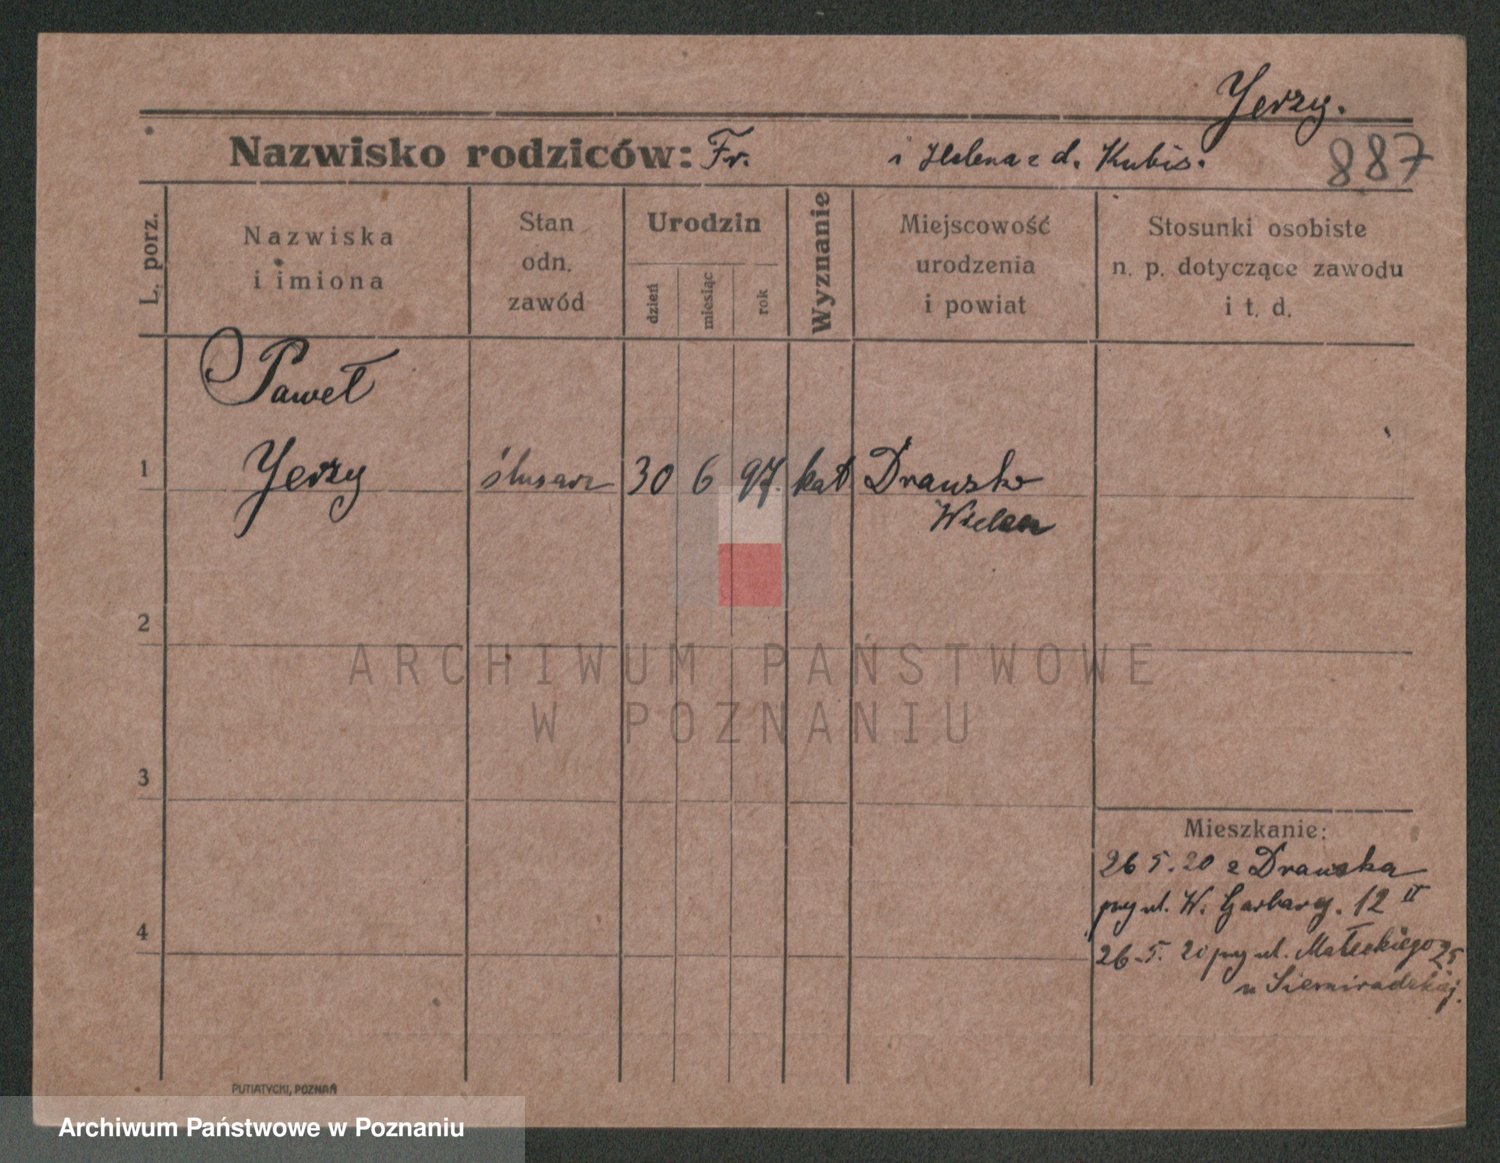 Jerzy.
Nazwisko rodziców: Fr. i Helena z d. Kubis.
887
L. porz.
Nazwiska
i imiona
Stan
odn.
zawód
Urodzin
dzień
miesiąc
rok
Wyznanie
Miejscowość
urodzenia
i powiat
Stosunki osobiste
n. p. dotyczące zawodu
i t. d.
Paweł
1 Jerzy ślusarz 30 6 97 kat Drawsko
Wieleń
2
ARCHIWUM PAŃSTWOWE
W POZNANIU
3
Mieszkanie:
26 5. 20 z Drawska
przy ul. W. Garbary. 12 II
4
26. 5. 21 przy ul. Małeckiego 25
u Siemiradzkiej.
PUTIATYCKI, POZNAŃ
Archiwum Państwowe w Poznaniu